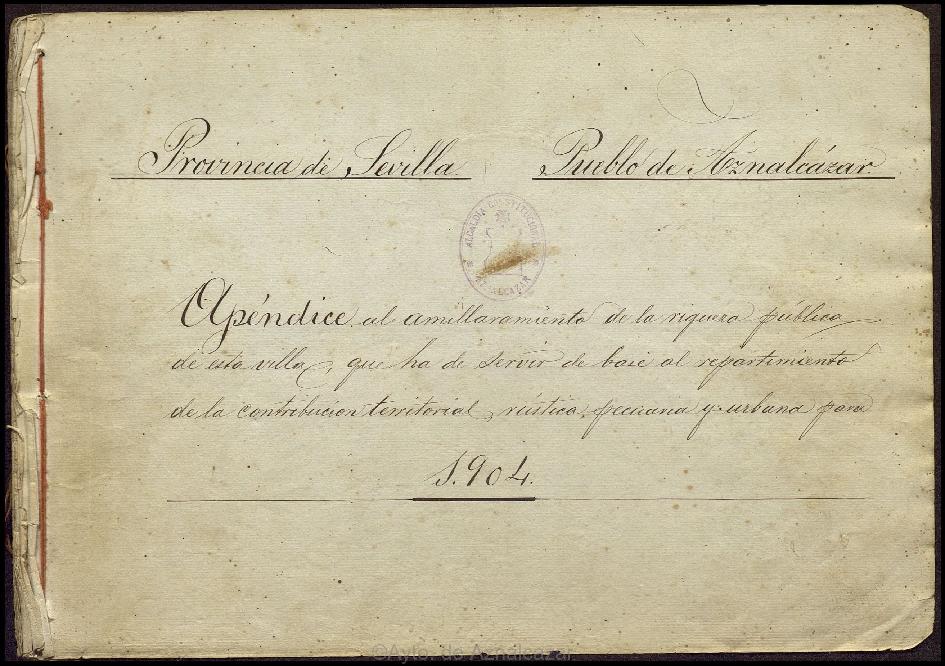 Provincia de Sevilla. Pueblo de Aznalcázar.
ALCALDIA CONSTITUCIONAL
AZNALCAZAR
Apéndice al amillaramiento de la riqueza pública
de esta villa, que ha de servir de base al repartimiento
de la contribucion territorial, rústica, pecuaria y urbana para
1.904.
©Ayto. de Aznalcázar